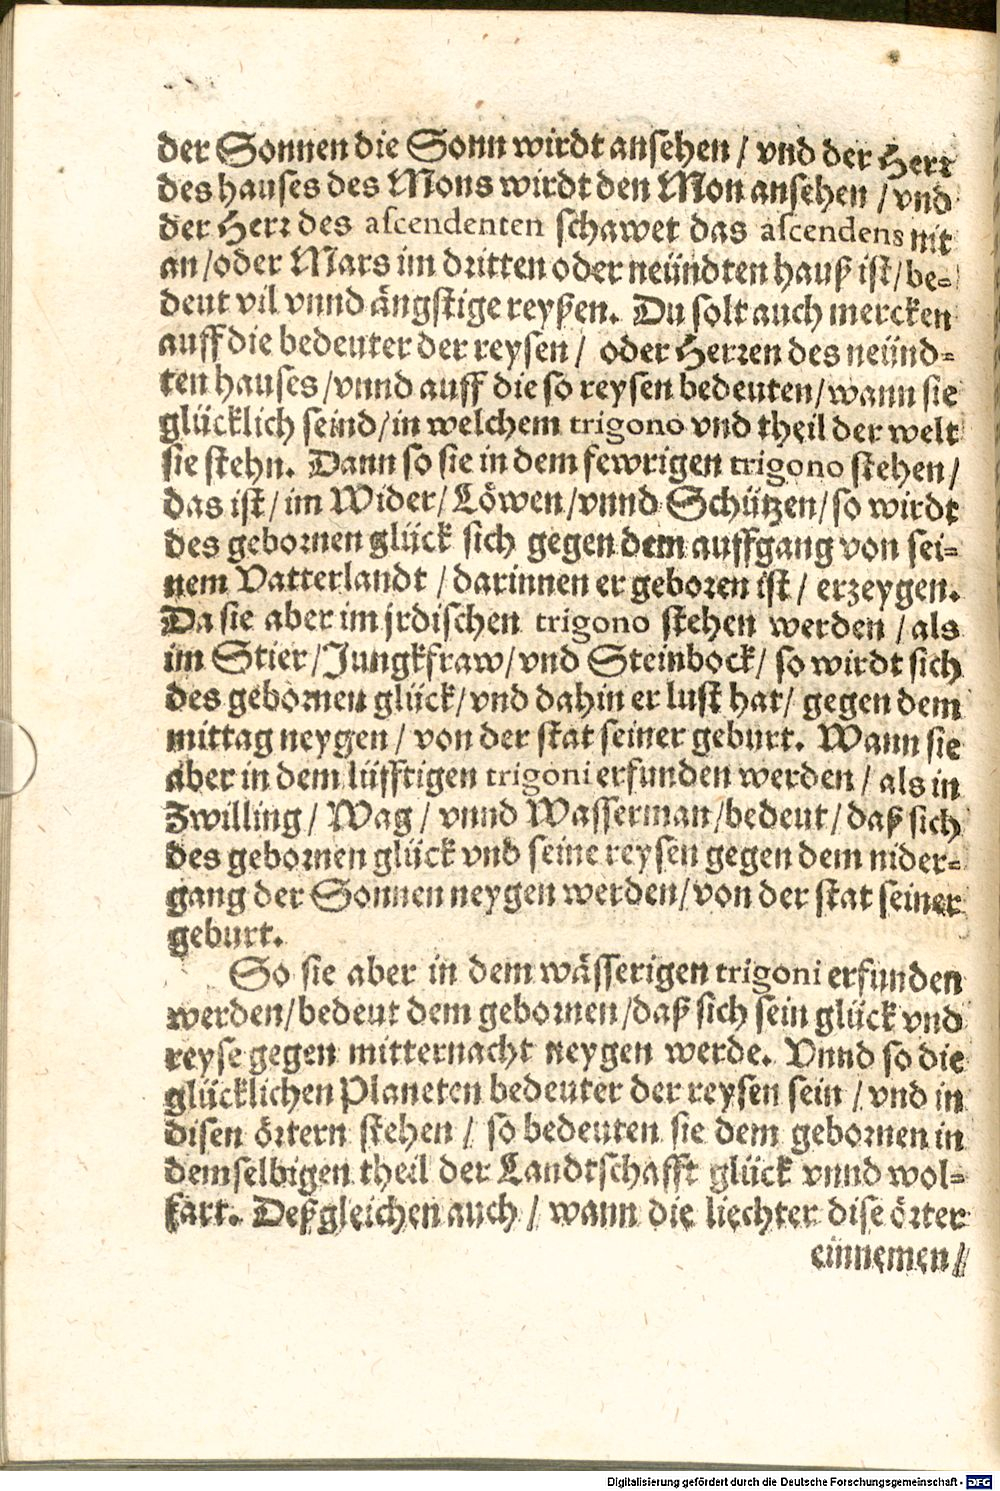 der Sonnen die Sonn wirdt ansehen / vnd der Herr
des hauses des Mons wirdt den Mon ansehen / vnd
der Herr des ascendenten schawet das ascendens nit
an/oder Mars im dritten oder neündten hauß ist/be-
deut vil vnnd ängstige reyßen. Du solt auch mercken
auff die bedeuter der reysen / oder Herren des neünd-
ten hauses/vnnd auff die so reysen bedeuten/wann sie
glücklich seind/in welchem trigono vnd theil der welt
sie stehn. Dann so sie in dem fewrigen trigono stehen/
das ist/im Wider/Löwen/vnnd Schützen/so wirdt
des gebornen glück sich gegen dem auffgang von sei-
nem Vatterlandt /darinnen er geboren ist / erzeygen.
Da sie aber im jrdischen trigono stehen werden /als
im Stier/Jungkfraw/vnd Steinbock/ so wirdt sich
des gebornen glück/vnd dahin er lust hat/ gegen dem
mittag neygen / von der stat seiner geburt. Wann sie
aber in dem lüfftigen trigoni erfunden werden / als in
Zwilling/ Wag / vnnd Wasserman/bedeut/daß sich
des gebornen glück vnd seine reysen gegen dem nider-
gang der Sonnen neygen werden/von der stat seiner
geburt.
So sie aber in dem wässerigen trigoni erfunden
werden/bedeut dem gebornen/daß sich sein glück vnd
reyse gegen mitternacht neygen werde. Vnnd so die
glücklichen Planeten bedeuter der reysen sein / vnd in
disen örtern stehen / so bedeuten sie dem gebornen in
demselbigen theil der Landtschafft glück vnnd wol-
fart. Deßgleichen auch / wann die liechter dise örter
einnemen/
Digitalisierung gefördert durch die Deutsche Forschungsgemeinschaft - DFG